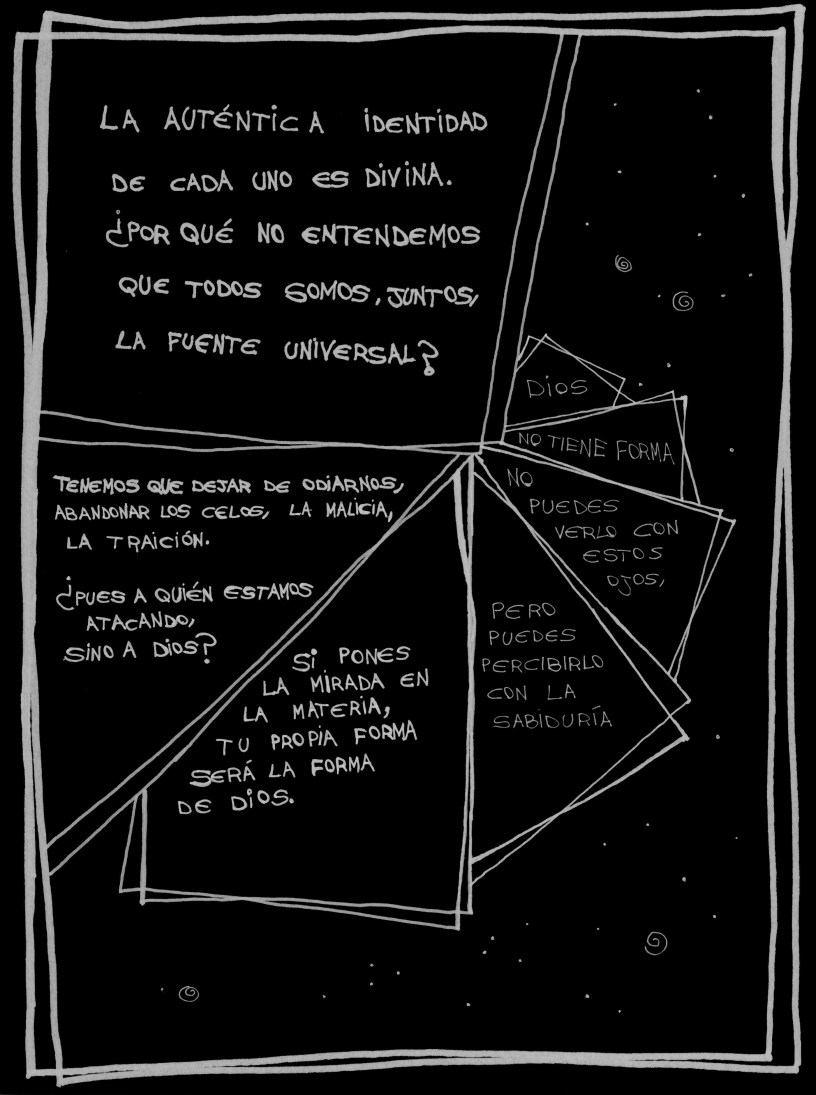 LA AUTÉNTICA IDENTIDAD
DE CADA UNO ES DIVINA.
¿POR QUÉ NO ENTENDEMOS
QUE TODOS SOMOS, JUNTOS,
LA FUENTE UNIVERSAL?
TENEMOS QUE DEJAR DE ODIARNOS,
ABANDONAR LOS CELOS, LA MALICIA,
LA TRAICIÓN.
¿PUES A QUIÉN ESTAMOS
ATACANDO,
SINO A DIOS?
SI PONES
LA MIRADA EN
LA MATERIA,
TU PROPIA FORMA
SERÁ LA FORMA
DE DIOS.
PERO
PUEDES
PERCIBIRLO
CON LA
SABIDURÍA
NO
PUEDES
VERLO CON
ESTOS
OJOS,
NO TIENE FORMA
DIOS